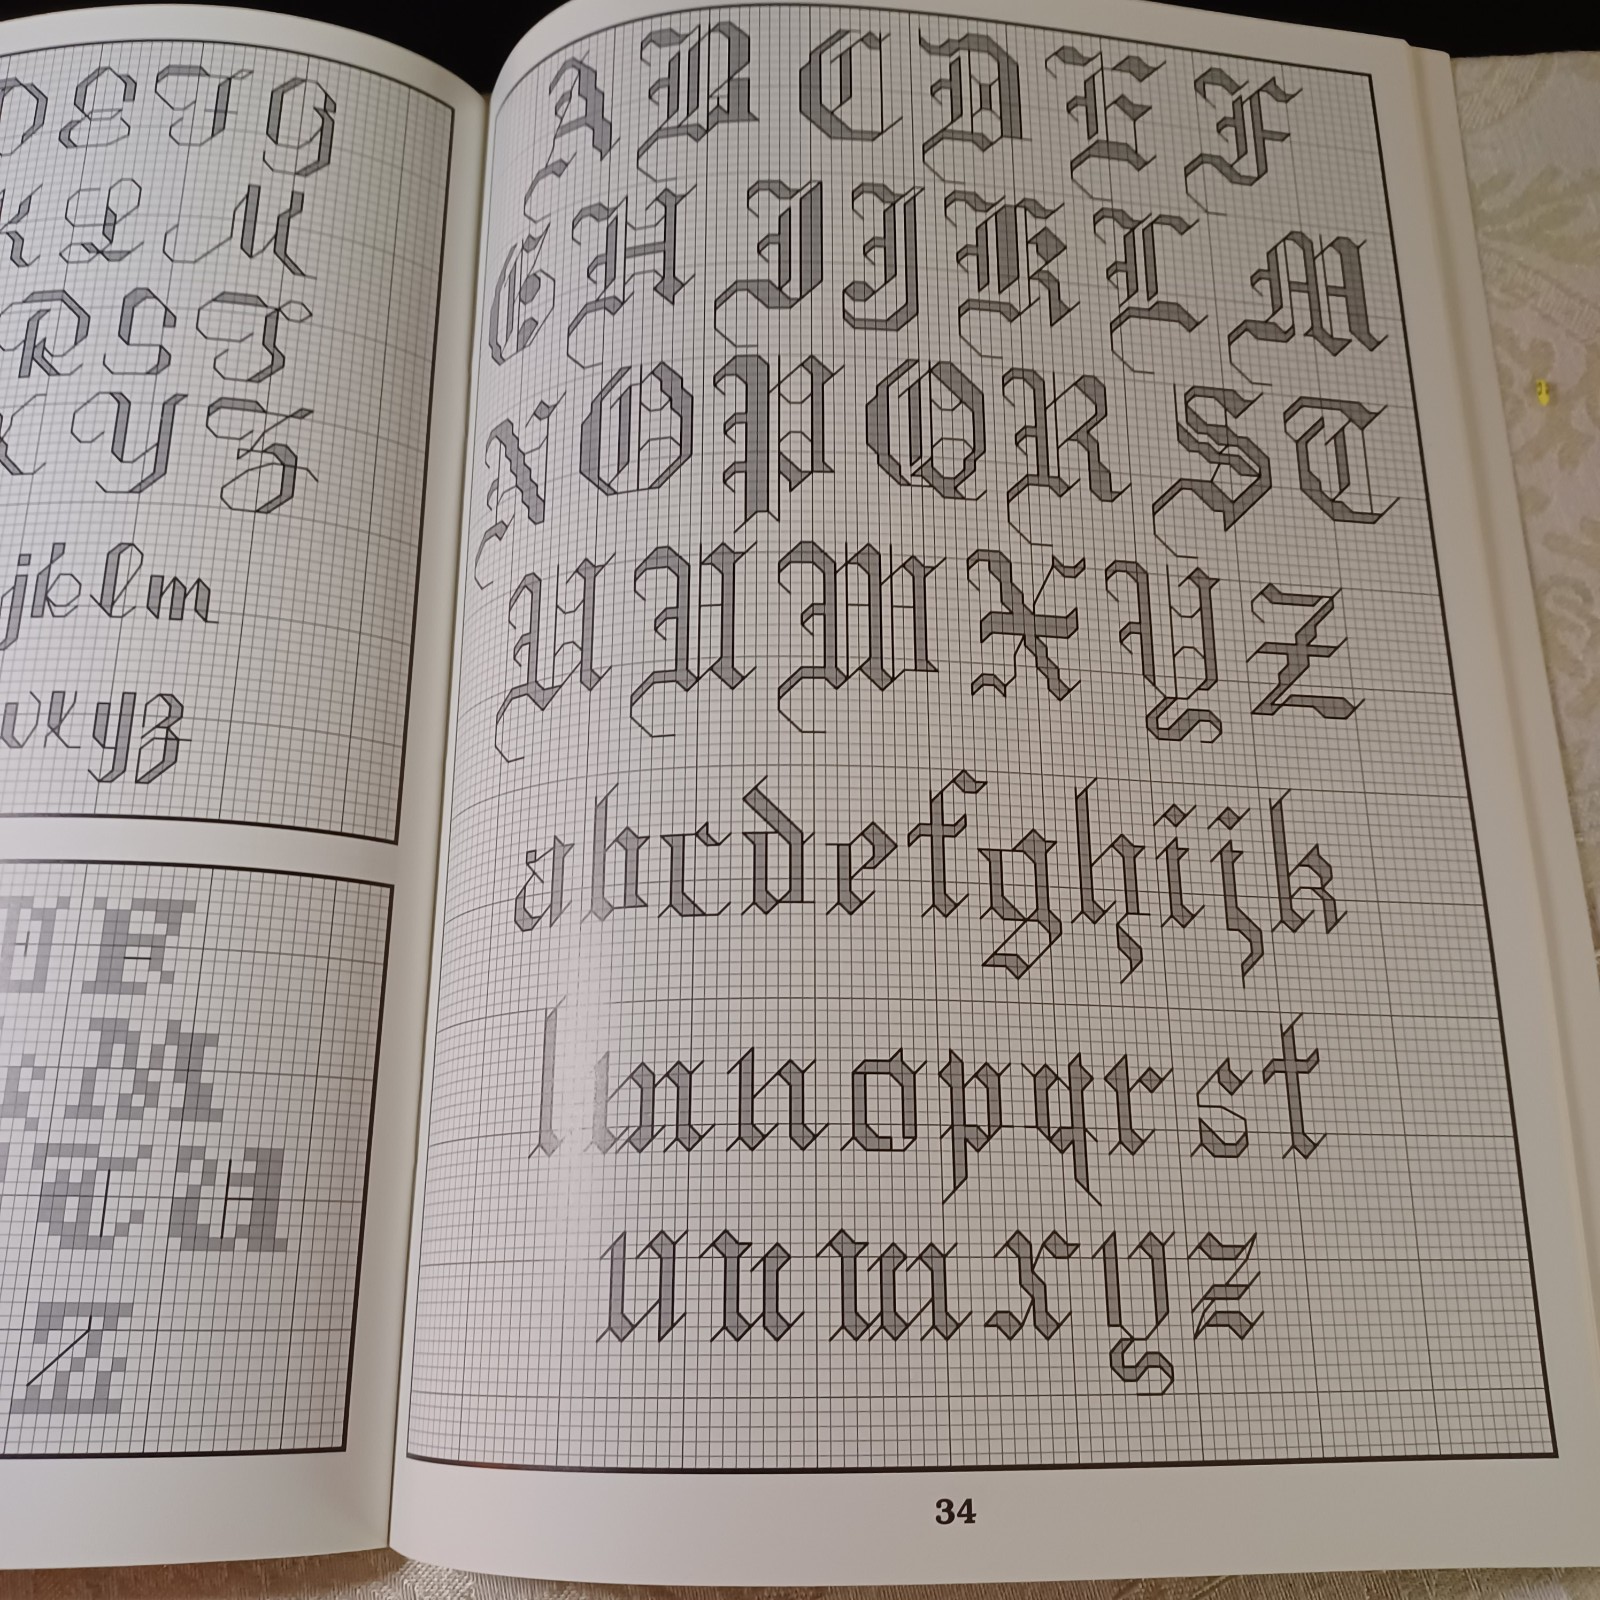 D E F G
K L M
R S T
X Y Z
j k l m
v x y z
D E
M
T U
Z
A B C D E F
G H I J K L M
N O P Q R S T
U V W X Y Z
a b c d e f g h i j k
l m n o p q r s t
u v w x y z
34